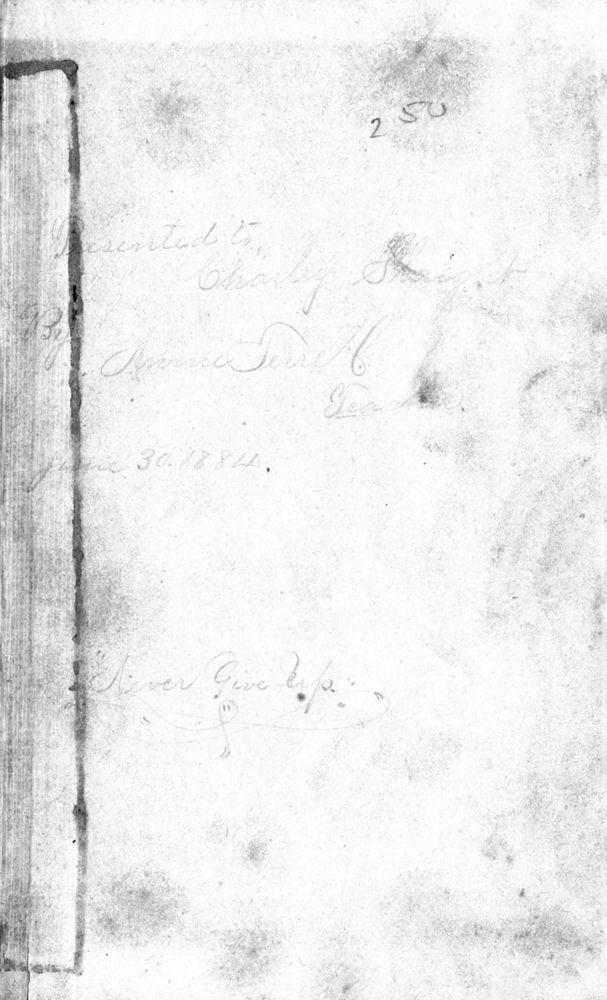 250
Presented to,
Charley
By
Terrell
Teacher.
June 30. 1884.
"Never Give Up."